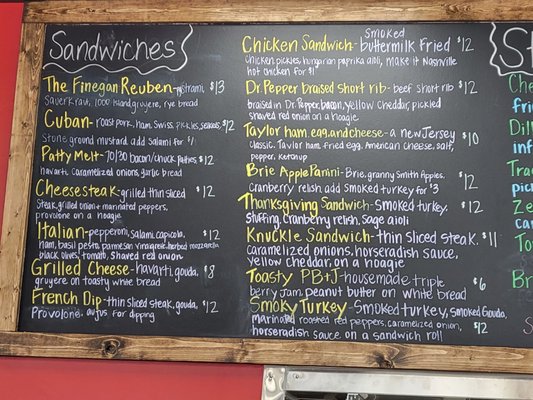 Sandwiches
The Finegan Reuben - pastrami, $13
Sauerkraut, 1000 island, gruyere, rye bread
Cuban - roast pork, ham, Swiss, pickles, $12
stone ground mustard add Salami for $1
Patty Melt - 70/30 bacon/chuck patties $12
havarti, Caramelized onions, garlic bread
Cheesesteak - grilled thin sliced $12
Steak, grilled onion + marinated peppers,
provolone on a hoagie
Italian - pepperoni, salami, capicola, $12
ham, basil pesto, parmesan vinaigrette, herbed mozzarella
black olives, tomato, shaved red onion
Grilled Cheese - havarti, gouda, $8
gruyere on toasty white bread
French Dip - thin sliced steak, gouda, $12
Provolone, aujus for dipping
Chicken Sandwich - Smoked buttermilk fried $12
Chicken, pickles, hungarian paprika aioli, make it Nashville
hot chicken for $1
Dr Pepper braised short rib - beef short rib $12
braised in Dr. Pepper, bacon, yellow Cheddar, pickled
shaved red onion on a hoagie
Taylor ham, egg, and cheese - a new Jersey $10
classic. Taylor ham, fried egg, American cheese, salt,
pepper, ketchup
Brie Apple Panini - Brie, granny Smith Apples, $12
Cranberry relish add smoked turkey for $3
Thanksgiving Sandwich - Smoked turkey, $12
stuffing, cranberry relish, Sage aioli
Knuckle Sandwich - thin sliced steak, $11
Caramelized onions, horseradish sauce,
yellow cheddar, on a hoagie
Toasty PB+J - housemade triple $6
berry jam, peanut butter on white bread
Smoky Turkey - Smoked turkey, smoked Gouda,
marinated roasted red peppers, caramelized onion, $12
horseradish sauce on a sandwich roll